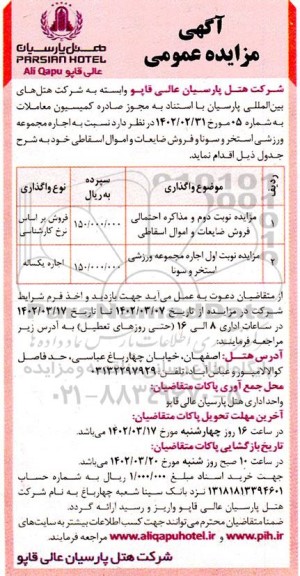 آگهی
مزایده عمومی
هتل پارسیان
PARSIAN HOTEL
Ali Qapu عالی قاپو
شرکت هتل پارسیان عالی قاپو وابسته به شرکت هتل‌های
بین‌المللی پارسیان با استناد به مجوز صادره کمیسیون معاملات
به شماره ۰۵ مورخ ۱۴۰۲/۰۲/۳۱ در نظر دارد نسبت به اجاره مجموعه
ورزشی استخر و سونا و فروش ضایعات و اموال اسقاطی خود به شرح
جدول ذیل اقدام نماید.
ردیف موضوع واگذاری سپرده به ریال نوع واگذاری
۱ مزایده نوبت دوم و مذاکره احتمالی فروش ضایعات و اموال اسقاطی ۱۵۰/۰۰۰/۰۰۰ فروش بر اساس نرخ کارشناسی
۲ مزایده نوبت اول اجاره مجموعه ورزشی استخر و سونا ۱۵۰/۰۰۰/۰۰۰ اجاره یکساله
از متقاضیان دعوت به عمل می‌آید جهت بازدید و اخذ فرم شرایط
شرکت در مزایده از تاریخ ۱۴۰۲/۰۳/۰۷ تا تاریخ ۱۴۰۲/۰۳/۱۷
در ساعات اداری ۸ الی ۱۶ (حتی روزهای تعطیل) به آدرس زیر
مراجعه فرمایند:
آدرس هتل: اصفهان، خیابان چهارباغ عباسی، حد فاصل
کوالالامپور و عباس آباد، تلفن: ۰۳۱۳۳۲۹۷۹۲۹
محل جمع آوری پاکات متقاضیان:
واحد اداری هتل پارسیان عالی قاپو
آخرین مهلت تحویل پاکات متقاضیان:
در ساعت ۱۶ روز چهارشنبه مورخ ۱۴۰۲/۰۳/۱۷ می‌باشد.
تاریخ بازگشایی پاکات متقاضیان:
در ساعت ۱۰ صبح روز شنبه مورخ ۱۴۰۲/۰۳/۲۰ می‌باشد.
جهت خرید اسناد مبلغ ۱/۰۰۰/۰۰۰ ریال به شماره حساب
۱۳۱۸۱۸۱۳۳۹۴۶۰۱ نزد بانک سینا شعبه چهارباغ به نام شرکت
هتل پارسیان عالی قاپو واریز و رسید ارائه گردد.
ضمنا متقاضیان محترم می‌توانند جهت کسب اطلاعات بیشتر به سایت‌های
www.pih.ir و www.aliqapuhotel.ir مراجعه فرمایند.
شرکت هتل پارسیان عالی قاپو